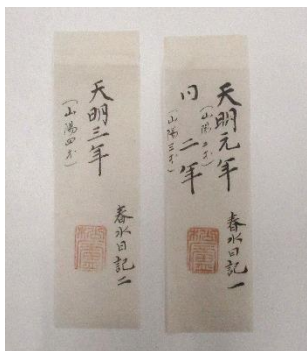 天明元年
(山陽二才)
同 二年
(山陽三才)
春水日記一
天明三年
(山陽四才)
春水日記二